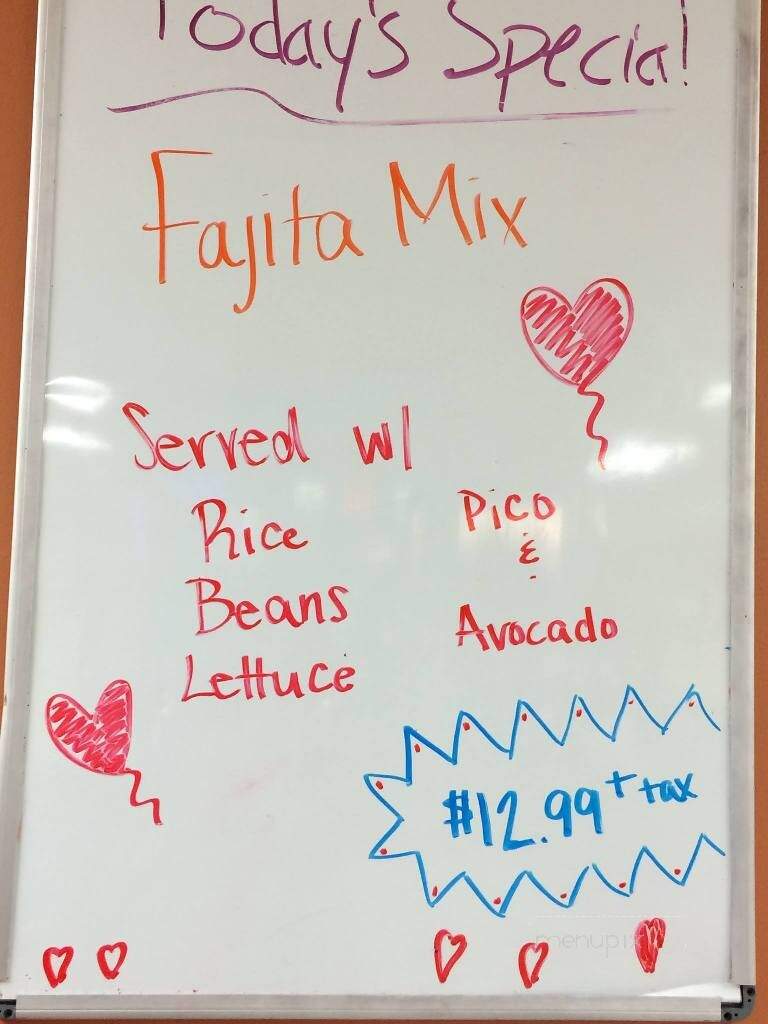 Today's Special
Fajita Mix
Served w/
Rice
Beans
Lettuce
Pico
&
Avocado
$12.99 + tax
menupix